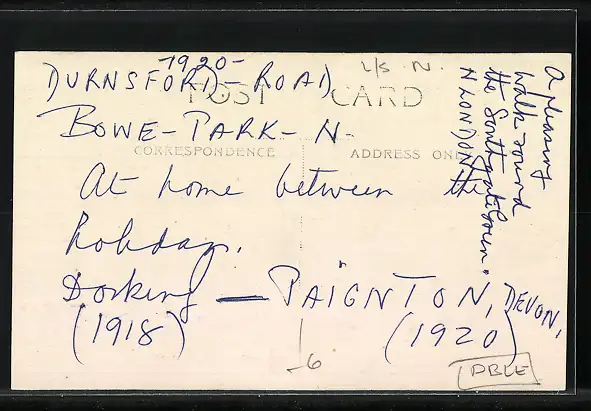 -1920-
DURNSFORD-ROAD
L/S N.
POST CARD
BOWE-PARK-N-
CORRESPONDENCE
ADDRESS ONLY
At home between the
holidays.
Dorking — PAIGNTON, DEVON,
(1918) (1920)
-6
DBLE
A pleasing
walk round
the Southgate
N LONDON